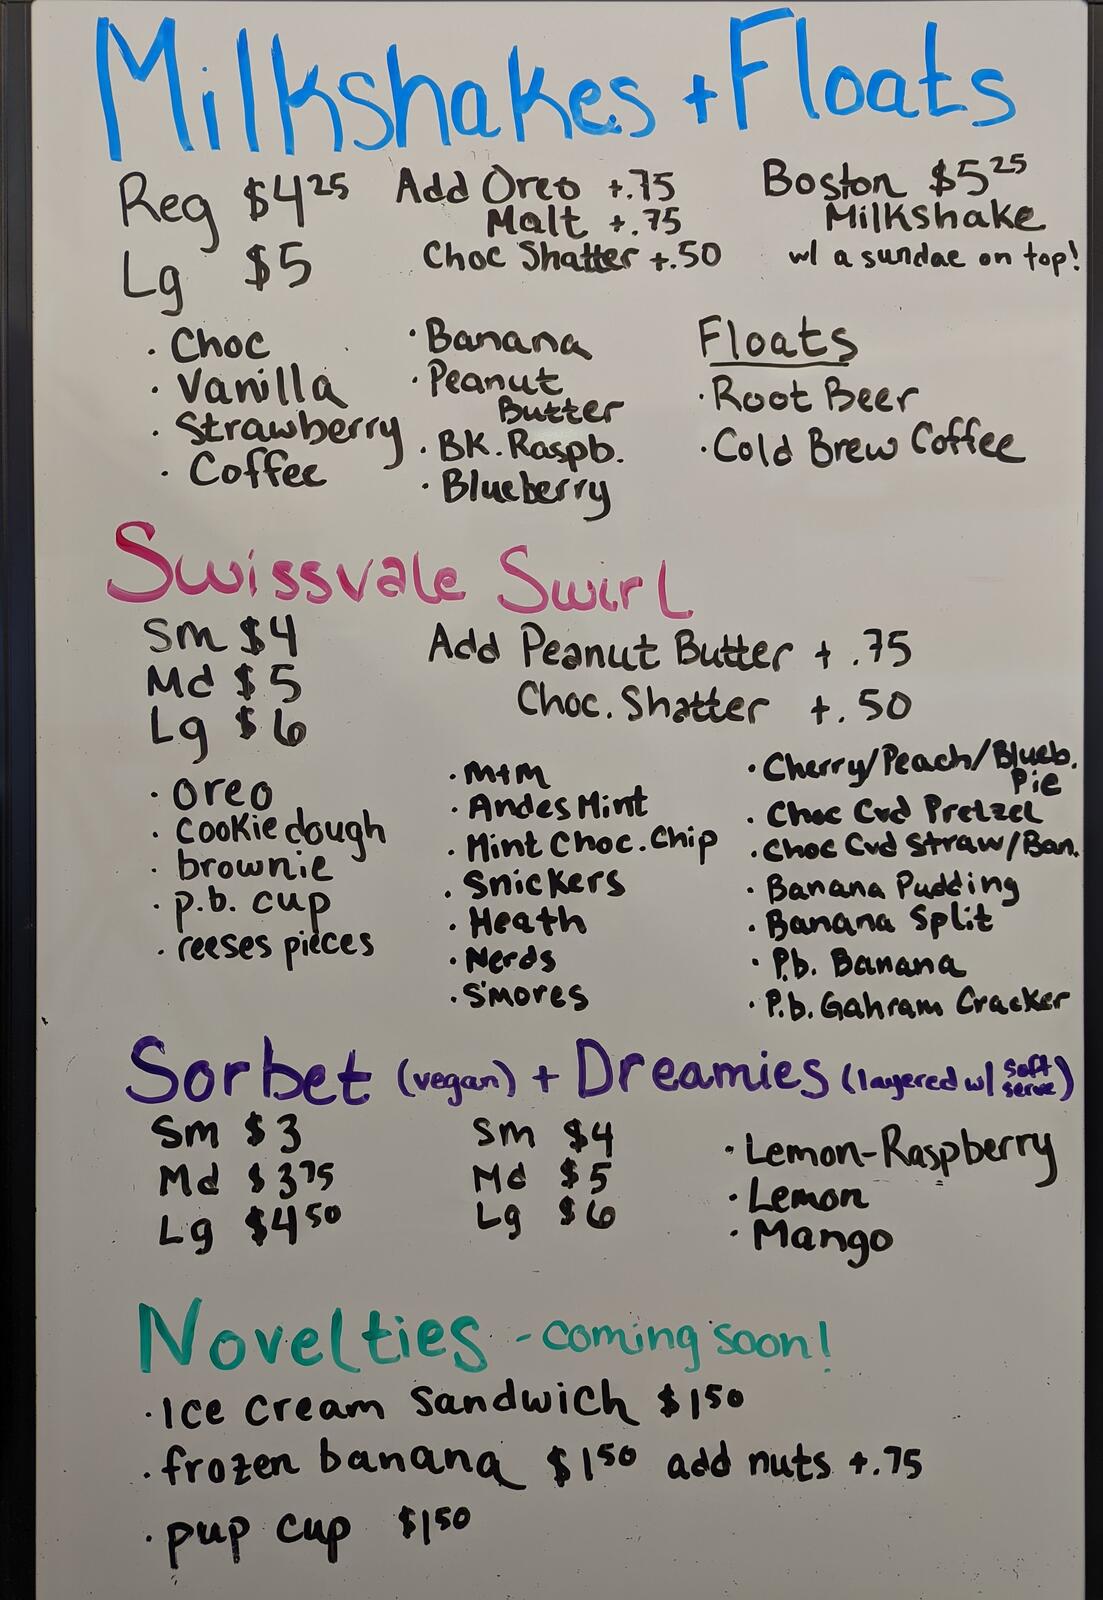 Milkshakes + Floats
Reg $4.25
Lg $5
Add Oreo +.75
Malt +.75
Choc Shatter +.50
Boston $5.25
Milkshake
w/ a sundae on top!
· Choc
· Vanilla
· Strawberry
· Coffee
· Banana
· Peanut
Butter
· BK. Raspb.
· Blueberry
Floats
· Root Beer
· Cold Brew Coffee
Swissvale Swirl
Sm $4
Md $5
Lg $6
Add Peanut Butter + .75
Choc. Shatter +.50
· oreo
· cookie dough
· brownie
· p.b. cup
· reeses pieces
· M+M
· Andes Mint
· Mint Choc. Chip
· Snickers
· Heath
· Nerds
· S'mores
· Cherry/Peach/Blueb.
Pie
· Choc Cvd Pretzel
· Choc Cvd Straw/Ban.
· Banana Pudding
· Banana Split
· P.b. Banana
· P.b. Gahram Cracker
Sorbet (vegan) + Dreamies (layered w/ soft
serve)
Sm $3
Md $3.75
Lg $4.50
Sm $4
Md $5
Lg $6
· Lemon-Raspberry
· Lemon
· Mango
Novelties - coming soon!
· Ice cream sandwich $1.50
· frozen banana $1.50 add nuts +.75
· pup cup $1.50